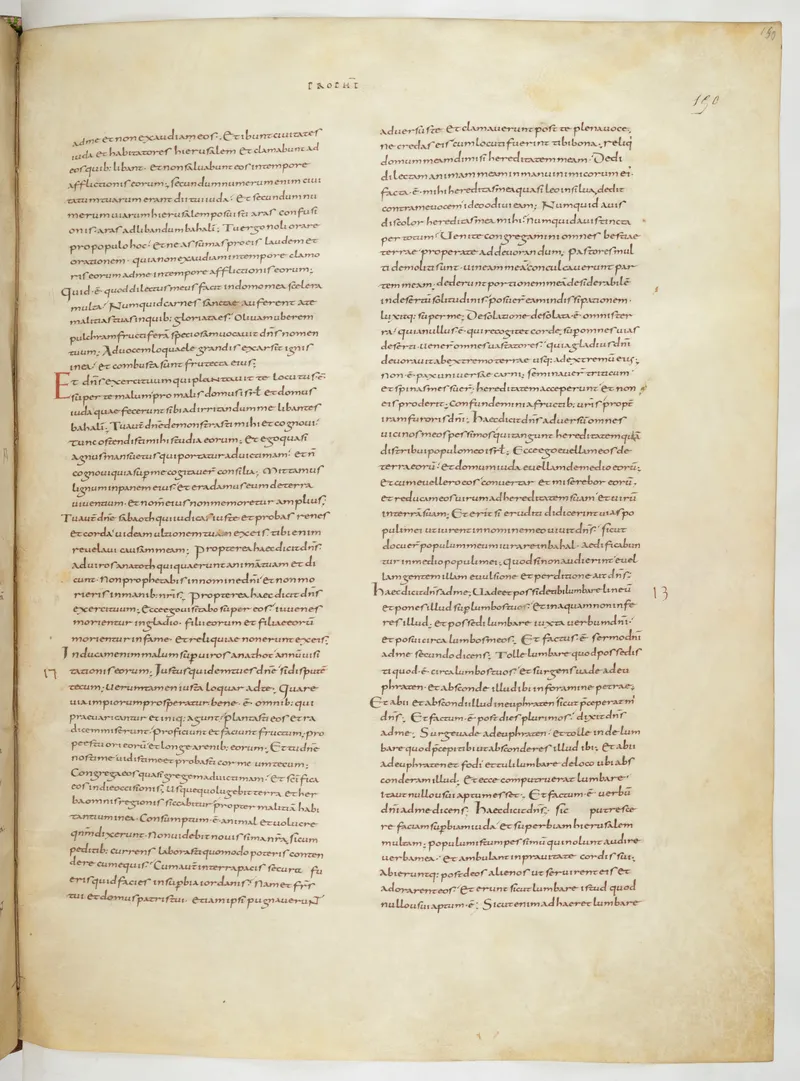 PROPHET
190
190
adme et non exaudiam eos; Et ibunt ciuitates
iuda et habitatores hierusalem et clamabunt ad
eos quib; libant· et non saluabunt eos in tempore
afflictionis eorum; secundum numerum enim ciui
tatum tuarum erant dii tui iuda; Et secundum nu
merum uiarum hierusalem posuisti aras confusi
onis· aras ad libandum bahali; Tu ergo noli orare
pro populo hoc· et ne assumas pro eis laudem et
orationem· quia non exaudiam in tempore clamo
ris eorum ad me in tempore afflictionis eorum;
Quid ē quod dilectus meus facit in domo mea scelera
multa? Numquid carnes sanctae auferent a te
malitias tuas in quib; gloriata es? Oliuam uberem
pulchram fructiferā speciosam uocauit dn̄s nomen
tuum; Ad uocem loquaelae grandis exarsit ignis
in ea· et combusta sunt frutecta eius;
Et dn̄s exercituum qui plantauit te locutus ē
super te malum· pro malis domus isrł et domus
iuda quae fecerunt sibi ad irritandum me libantes
bahali; Tu autē dn̄e demonstrasti mihi et cognoui·
tunc ostendisti mihi studia eorum; Et ego quasi
agnus mansuetus qui portatur ad uictimam· et n̄
cognoui quia sup me cogitauer̄ consilia; Mittamus
lignum in panem eius· et eradamus eum de terra
uiuentium· et nomen eius non memoretur amplius;
Tu autē dn̄e sabaoth qui iudicas iuste et probas renes
et corda· uideam ultionem tuam ex eis· tibi enim
reuelaui causam meam; Propterea haec dicit dn̄s
ad uiros anatoth qui quaerunt animā tuam et di
cunt· Non prophetabis in nomine dn̄i· et non mo
rieris in manib; nr̄is; Propterea haec dicit dn̄s
exercituum; Ecce ego uisitabo super eos· iuuenes
morientur in gladio· filii eorum et filiae eorū
morientur in fame· et reliquiae non erunt ex eis;
Inducam enim malum sup uiros anathot annū uisi
tationis eorum; Iustus quidem tu es dn̄e si disputē
17
tecum; Uerumtamen iusta loquar ad te; Quare
uia impiorum prosperatur· bene ē omnib; qui
praeuaricantur et iniq; agunt? plantasti eos et ra
dicem miserunt· proficiunt et faciunt fructum; pro
pe es tu ori eorū et longe a renib; eorum; Et tu dn̄e
nosti me uidisti me et probasti cor meum tecum;
Congrega eos quasi gregem ad uictimam· et sc̄ifica
eos in die occisionis; Usquequo lugebit terra et her
ba omnis regionis siccabitur propter malitiā habi
tantium in ea; Consumptum ē animal et uolucre
qn̄m dixerunt· Non uidebit nouissima nr̄a; si cum
peditib; currens laborasti quomodo poteris conten
dere cum equis? Cum autē in terra pacis secura fu
eris quid facies in supbia iordanis? Nam et fr̄s
tui et domus patris tui· etiam ipsi pugnauerunt
aduersū te· et clamauerunt post te plena uoce;
ne credas eis cum locuti fuerint tibi bona; reliq̄
domum meam dimisi hereditatem meam· Dedi
dilectam animam meam in manu inimicorum ei·
facta ē mihi hereditas mea quasi leo in silua· dedit
contra me uocem ideo odiui eam; Numquid auis
discolor hereditas mea mihi? numquid auis tincta
per totum? Uenite congregamini omnes bestiae
terrae· properate ad deuorandum; Pastores mul
ti demoliti sunt· uineam meā· conculcauerunt par
tem meam· dederunt portionem meā desiderabilē
in desertū solitudinis· posuer̄ eam in dissipationem·
luxitq; super me; Desolatione desolata ē omnis ter
ra· quia nullus ē qui recogitet corde; sup omnes uias
deserti uener̄ omnes uastatores· quia gladius dn̄i
deuorauit ab extremo terrae usq; ad extremū eius;
Non ē pax uniuersae carni; seminauer̄ triticum
et spinas messuer̄; hereditatem acceperunt· et non
eis proderit; Confundemini a fructib; ur̄is propt̄
iram furoris dn̄i; Haec dicit dn̄s aduersū omnes
uicinos meos pessimos qui tangunt hereditatem quā
distribui populo meo isrł; Ecce ego euellam eos de
terra eorū· et domum iuda euellam de medio eorū;
Et cum euellero eos conuertar et miserebor eorū;
et reducam eos uirum ad hereditatem suam· et uirū
in terrā suam; Et erit si eruditi didicerint uias po
puli mei ut iurent in nomine meo uiuit dn̄s· sicut
docuer̄ populum meum iurare in bahal· aedificabun
tur in medio populi mei; quod si non audierint euel
lam gentem illam euulsione et perditione ait dn̄s;
Haec dicit dn̄s ad me; Uade et posside tibi lumbare lineū
13
et pones illud sup lumbos tuos· et in aquam non infe
res illud; et possedi lumbare iuxta uerbum dn̄i·
et posui circa lumbos meos; Et factus ē sermo dn̄i
ad me secundo dicens; Tolle lumbare quod possedis
ti quod ē circa lumbos tuos· et surgens uade ad eu
phraten· et absconde illud ibi in foramine petrae;
Et abii et abscondi illud in euphraten sicut p̄ceperat m̄
dn̄s; Et factum ē post dies plurimos· dixit dn̄s
ad me; Surge uade ad euphraten· et tolle inde lum
bare quod p̄cepi tibi ut absconderes illud ibi; et abii
ad euphraten et fodi· et tuli lumbare de loco ubi abs
conderam illud; et ecce computruerat lumbare·
ita ut nullo usui aptum esset; Et factum ē uerbū
dn̄i ad me dicens; Haec dicit dn̄s; sic putresce
re faciam supbiam iuda et superbiam hierusalem
multam; populum istum pessimū qui nolunt audire
uerba mea· et ambulant in prauitate cordis sui;
Abieruntq; post deos alienos ut seruirent eis et
adorarent eos; Et erunt sicut lumbare istud quod
nullo usui aptum ē; Sicut enim adhaeret lumbare